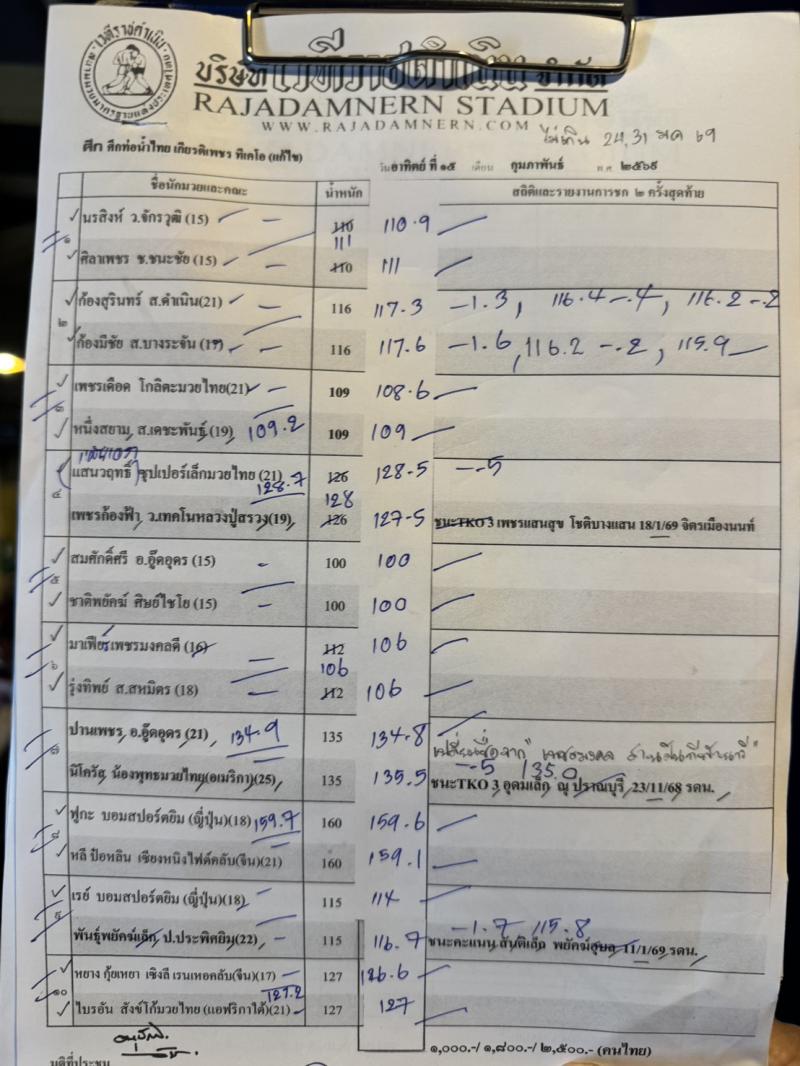 บริษัท เวทีราชดำเนิน จำกัด
RAJADAMNERN STADIUM
WWW.RAJADAMNERN.COM
ไม่เกิน 24,31 มค 69
ศึก ศึกท่อน้ำไทย เกียรติเพชร ทีเคโอ (แก้ไข)
วันอาทิตย์ ที่ ๑๕ เดือน กุมภาพันธ์ พ.ศ. ๒๕๖๙
ชื่อนักมวยและคณะ น้ำหนัก สถิติและรายงานการชก ๒ ครั้งสุดท้าย
๑
นรสิงห์ ว.จักรวุฒิ (15) 110 110.9
111
ศิลาเพชร ช.ชนะชัย (15) 110 111
ก้องสุรินทร์ ส.ดำเนิน(21) 116 117.3 -1.3, 116.4-.4, 116.2-.2
๒
ก้องมีชัย ส.บางระจัน (17) 116 117.6 -1.6, 116.2 -.2, 115.9
เพชรเดือด โกลิตะมวยไทย(21) 109 108.6
๓
หนึ่งสยาม ส.เดชะพันธุ์ (19) 109.2 109 109
แสนวฤทธิ์ ซุปเปอร์เล็กมวยไทย (21) 128.7 126 128.5 -.5
๔
128
เพชรก้องฟ้า ว.เทคโนหลวงปู่สรวง(19) 126 127.5 ชนะTKO 3 เพชรแสนสุข โชติบางแสน 18/1/69 จิตรเมืองนนท์
สมศักดิ์ศรี อ.อู๊ดอุดร (15) 100 100
๕
ชาติพยัคฆ์ ศิษย์ไชโย (15) 100 100
มาเฟียร์เพชรมงคลดี (16) 112 106
๖
106
รุ่งทิพย์ ส.สหมิตร (18) 112 106
ปานเพชร อ.อู๊ดอุดร (21) 134.9 135 134.8
เปลี่ยนชื่อจาก
๗
-.5 135.0
นิโครัส น้องพุทธมวยไทย(อเมริกา)(25) 135 135.5 ชนะTKO 3 อุดมเล็ก ณุ ปราณบุรี 23/11/68 รดน.
ฟูกะ บอมสปอร์ตยิม (ญี่ปุ่น)(18) 159.7 160 159.6
๘
หลี ป๋อหลิน เซียงหนิงไฟต์คลับ(จีน)(21) 160 159.1
เรย์ บอมสปอร์ตยิม (ญี่ปุ่น)(18) 115 114
๙
-1.7 115.8
พันธุ์พยัคฆ์เล็ก ป.ประพิศยิม(22) 115 116.7 ชนะคะแนน สันติเล็ก พยัคฆ์อุบล 11/1/69 รดน.
หยาง กุ้ยเหยา เซิงลี เรนเหอคลับ(จีน)(17) 127 126.6
๑๐
127.2
ไบรอัน สังข์โก้มวยไทย (แอฟริกาใต้)(21) 127 127
๑,๐๐๐.-/ ๑,๘๐๐.-/ ๒,๕๐๐.- (คนไทย)
มติที่ประชุม